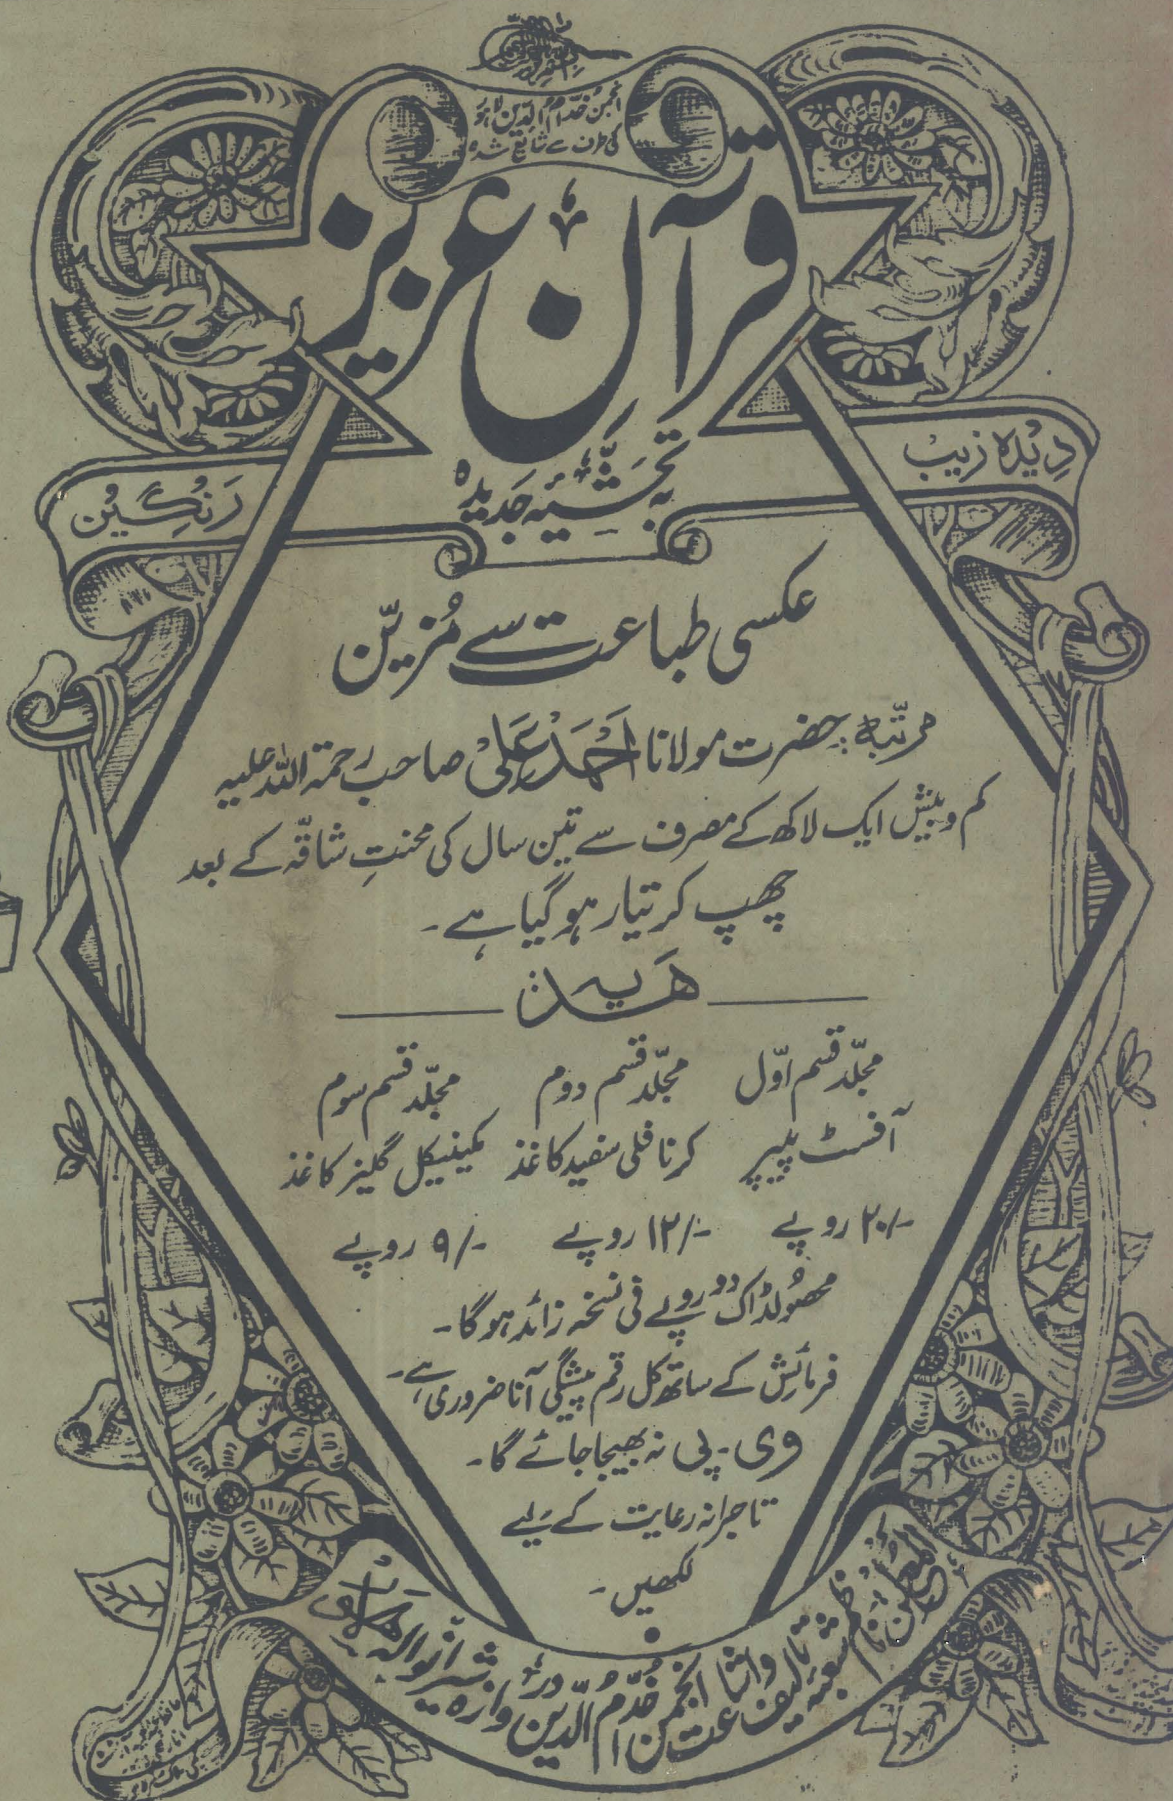 انجمن خدّام الدین لاہور
کی طرف سے شائع شدہ
قرآن عزیز
بہ تحشیۂ جدیدہ
دیدہ زیب
رنگین
عکسی طباعت سے مُزیّن
مرتّبہ: حضرت مولانا احمد علی صاحب رحمۃ اللہ علیہ
کم و بیش ایک لاکھ کے مصرف سے تین سال کی محنتِ شاقّہ کے بعد
چھپ کر تیار ہو گیا ہے۔
ھدیہ
مجلّد قسم اوّل مجلّد قسم دوم مجلّد قسم سوم
آفسٹ پیپر کرنافلی سفید کاغذ مکینیکل گلیز کاغذ
۲۰/- روپے ۱۲/- روپے ۹/- روپے
محصولڈاک دو روپے فی نسخہ زائد ہوگا۔
فرمائش کے ساتھ کل رقم پیشگی آنا ضروری ہے۔
وی۔پی نہ بھیجا جائے گا۔
تاجرانہ رعایت کے لیے
لکھیں۔
المعلن: ناظم شعبۂ تالیف و اشاعت انجمن خدّام الدین دروازہ شیرانوالہ لاہور